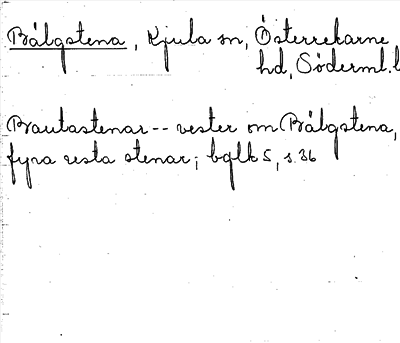 Bälgstena, Kjula sn, Österrekarne
hd, Söderml.l
Brautastenar -- vester om Bälgstena,
fyra resta stenar; bglk 5, s. 36